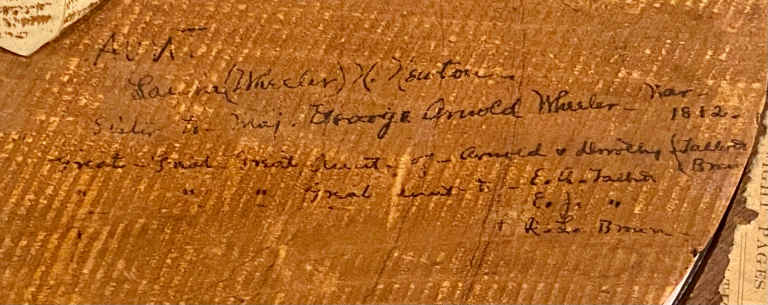 Aunt
(Wheeler) H. Newton
Sister to Maj. George Arnold Wheeler - War -
1812.
Great - Great Great Aunt - of - Arnold & Dorothy { Talbot
Brown
" " " Great Aunt - to - E. A. Talbot
E. J. "
+ Brown -
PAGES